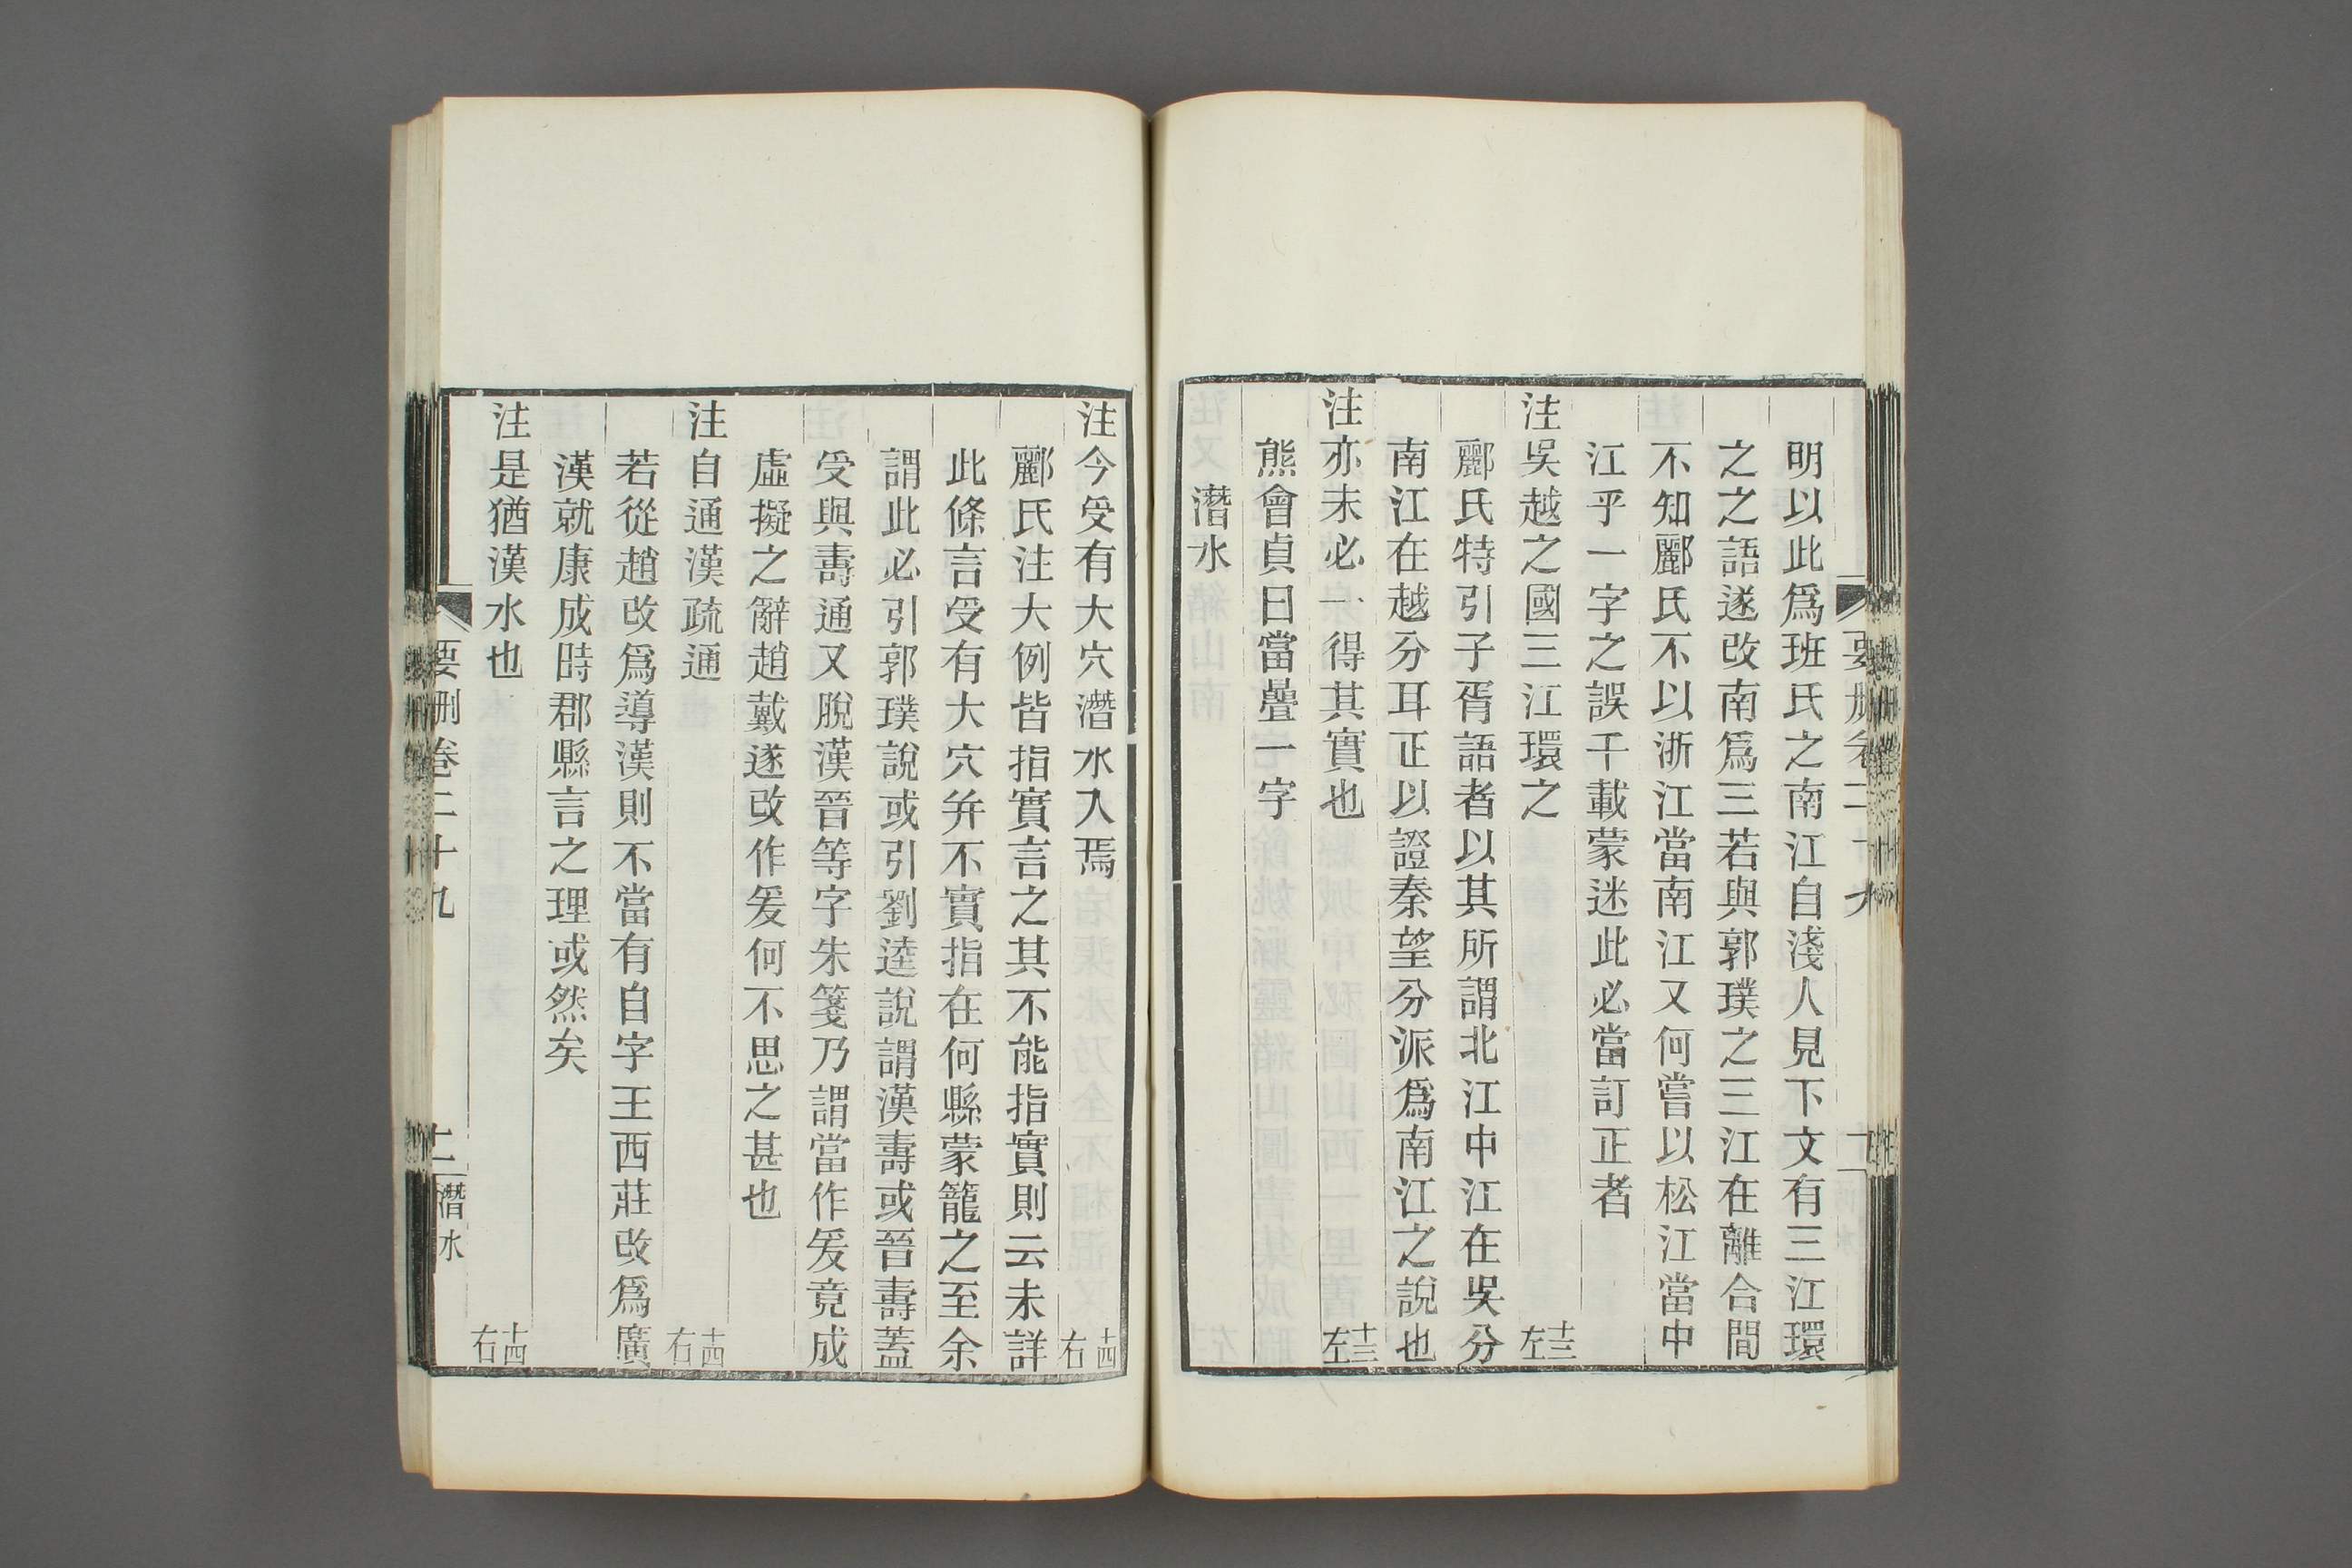 明以此爲班氏之南江自淺人見下文有三江環
之之語遂改南爲三若與郭璞之三江在離合間
不知酈氏不以浙江當南江又何嘗以松江當中
江乎一字之誤千載蒙迷此必當訂正者
注吳越之國三江環之 十三左
酈氏特引子胥語者以其所謂北江中江在吳分
南江在越分耳正以證秦望分派爲南江之說也
注亦未必一得其實也 十三左
熊會貞曰當疊一字
潛水
注今受有大穴潛水入焉 十四右
酈氏注大例皆指實言之其不能指實則云未詳
此條言受有大穴幷不實指在何縣蒙籠之至余
謂此必引郭璞說或引劉逵說謂漢壽或晉壽蓋
受與壽通又脫漢晉等字朱箋乃謂當作爰竟成
虛擬之辭趙戴遂改作爰何不思之甚也
注自通漢疏通 十四右
若從趙改爲導漢則不當有自字王西莊改爲廣
漢就康成時郡縣言之理或然矣
注是猶漢水也 十四右
要刪卷二十九 二 潛水